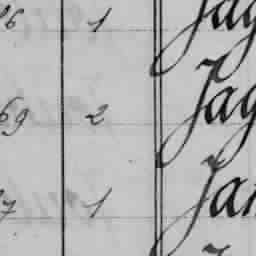 26 1 Jag
69 2 Jag
27 1 Jan